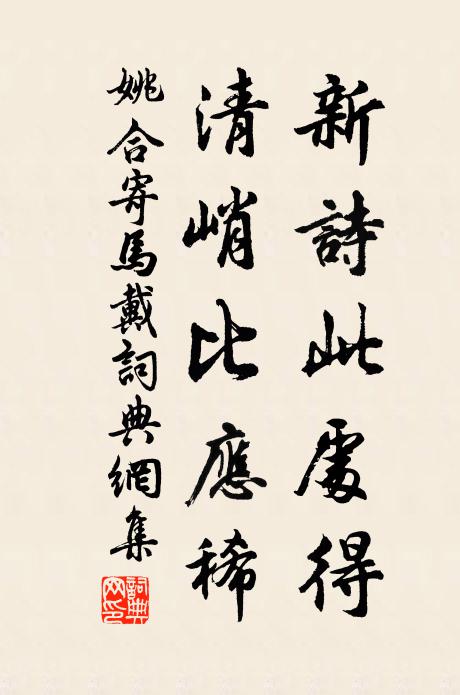 新詩此處得
清峭比應稀
姚合寄馬戴詞典網集
詞典网印